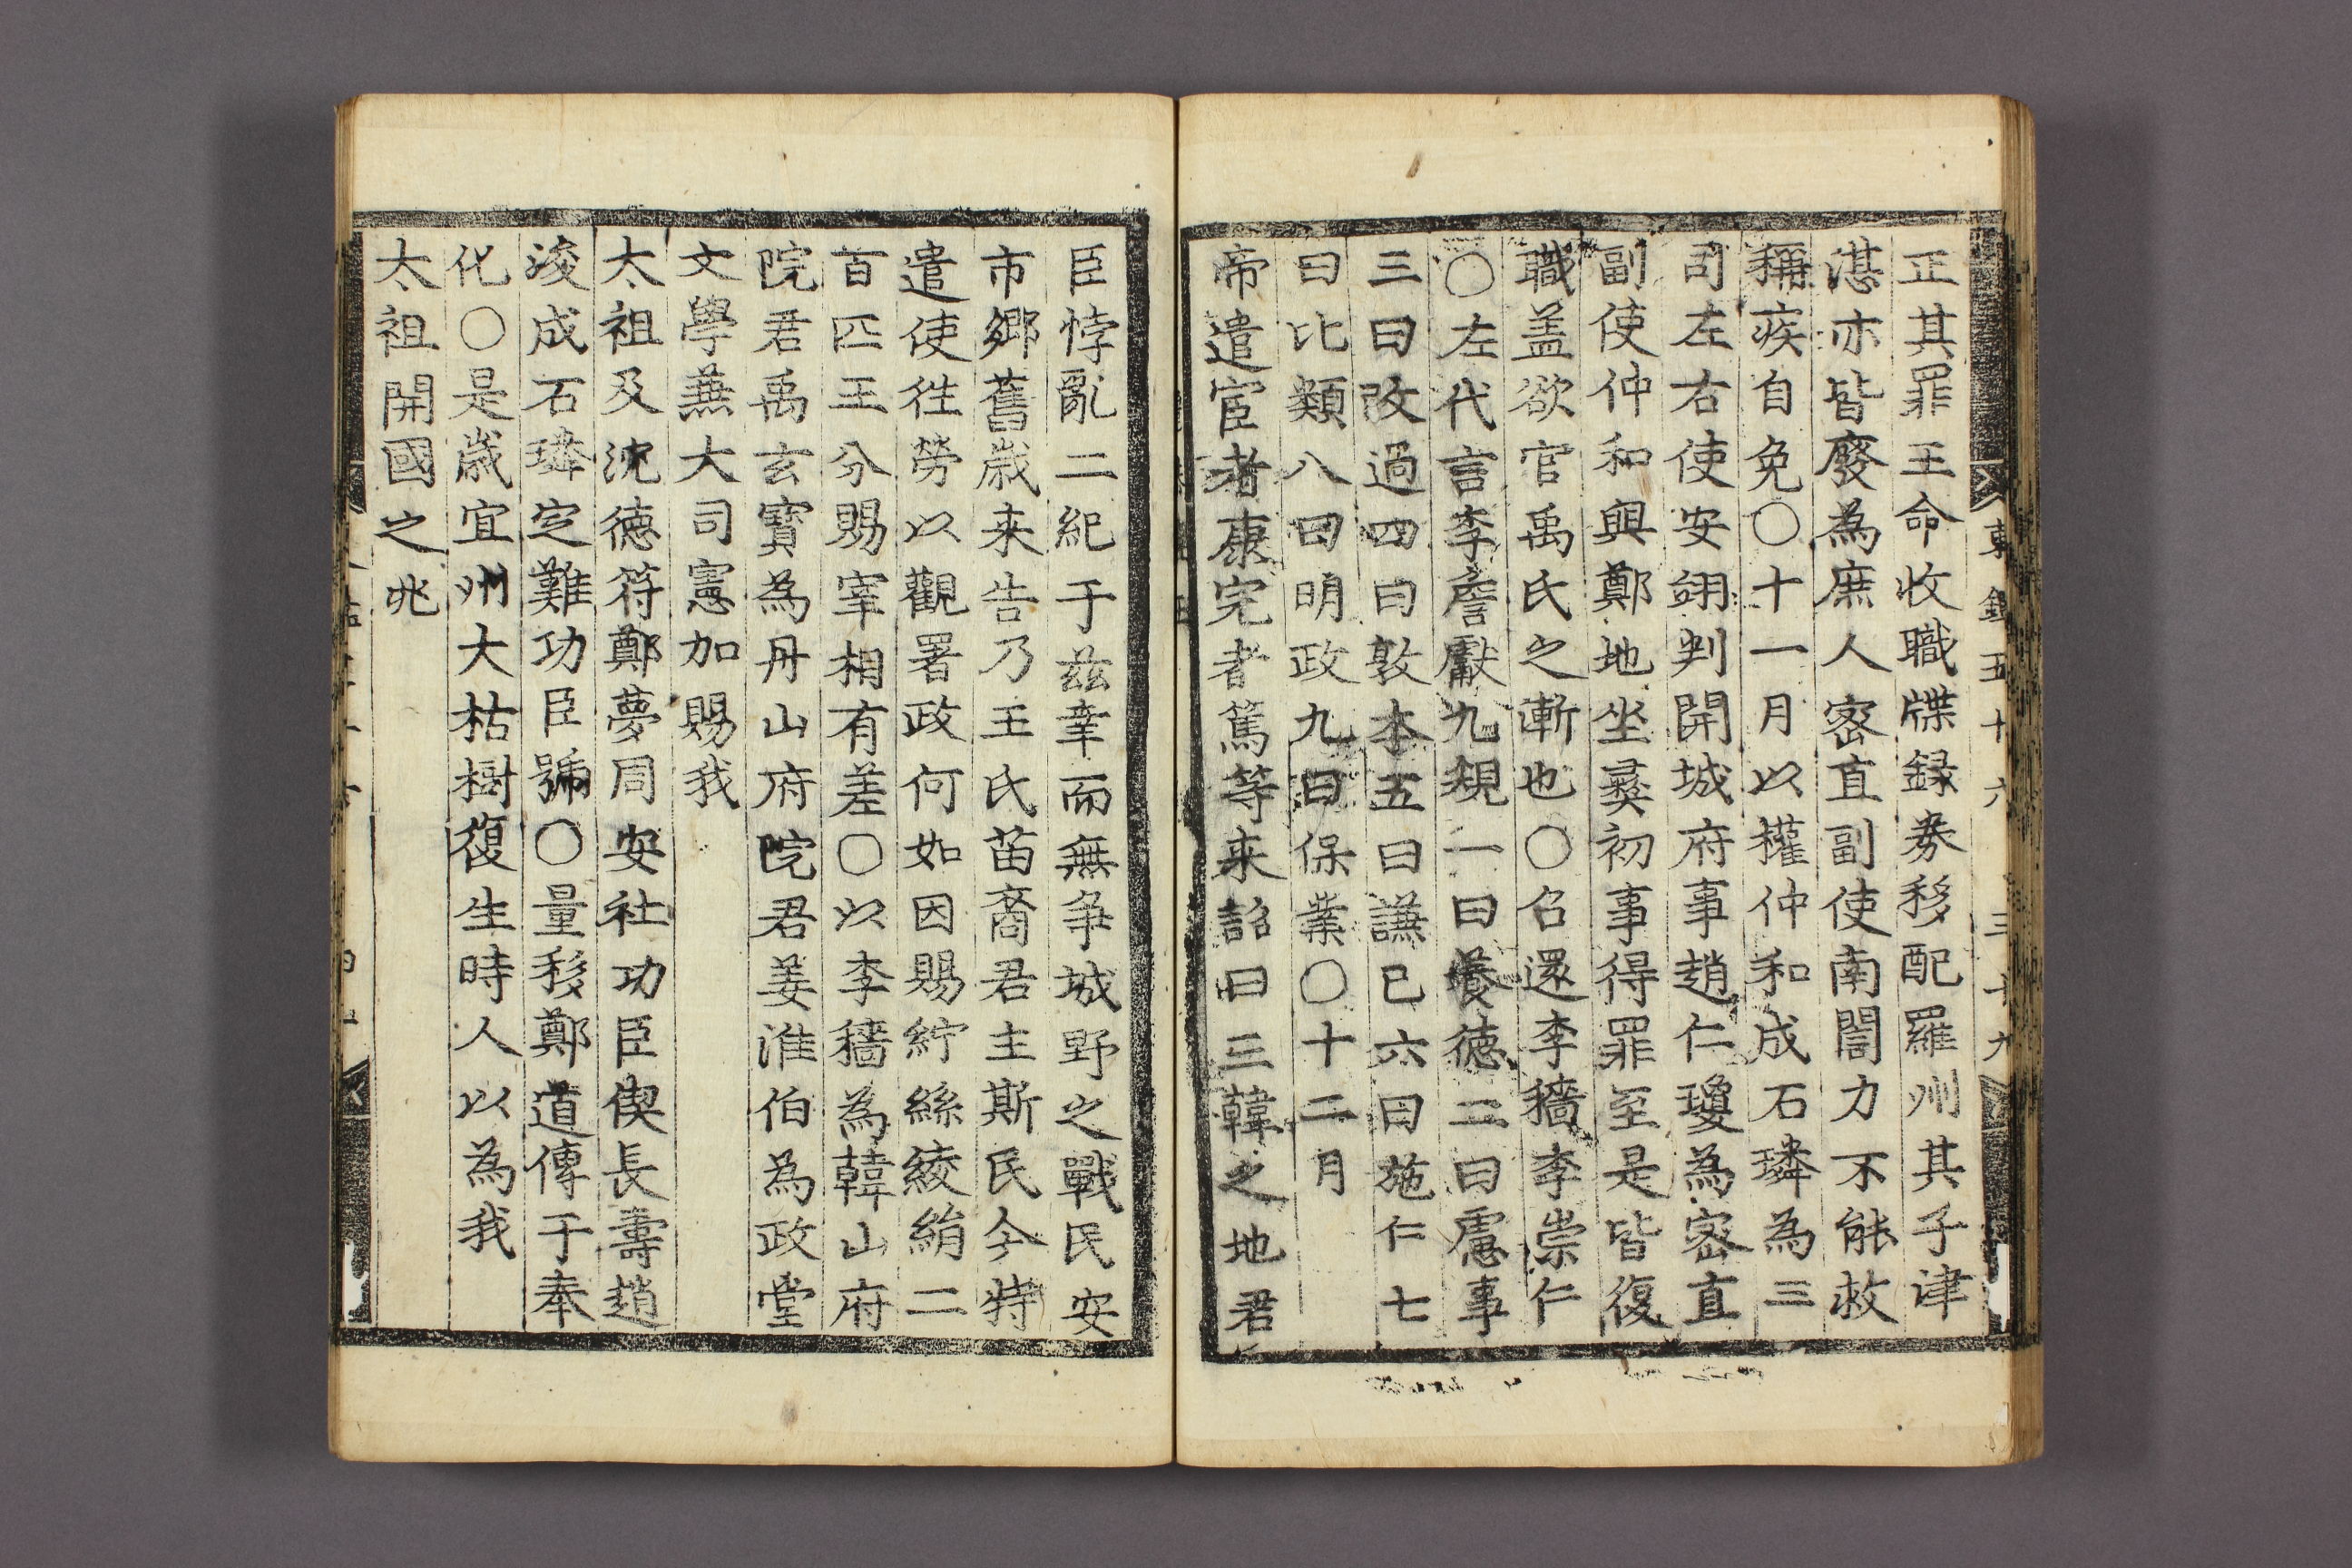 正其罪王命收職牒録券移配羅州其子津
湛亦皆廢為庶人密直副使南誾力不能救
稱疾自免○十一月以權仲和成石璘為三
司左右使安翊判開城府事趙仁瓊為密直
副使仲和與鄭地坐彛初事得罪至是皆復
職盖欲官禹氏之漸也○召還李穡李崇仁
○左代言李詹獻九規一曰養徳二曰慮事
三曰改過四曰敦本五曰謙已六曰施仁七
曰比類八曰明政九曰保業○十二月
帝遣宦者康完者篤等来詔曰三韓之地君
東鑑五十六 三十九
臣悖亂二紀于兹幸而無争城野之戰民安
市鄉舊歲来告乃王氏苗裔君主斯民今特
遣使徃勞以觀署政何如因賜紵絲綾絹二
百匹王分賜宰相有差○以李穡為韓山府
院君禹玄寶為丹山府院君姜淮伯為政堂
文學兼大司憲加賜我
太祖及沈徳符鄭夢周安社功臣偰長壽趙
浚成石璘定難功臣號○量移鄭道傳于奉
化○是歲宜州大枯樹復生時人以為我
太祖開國之兆